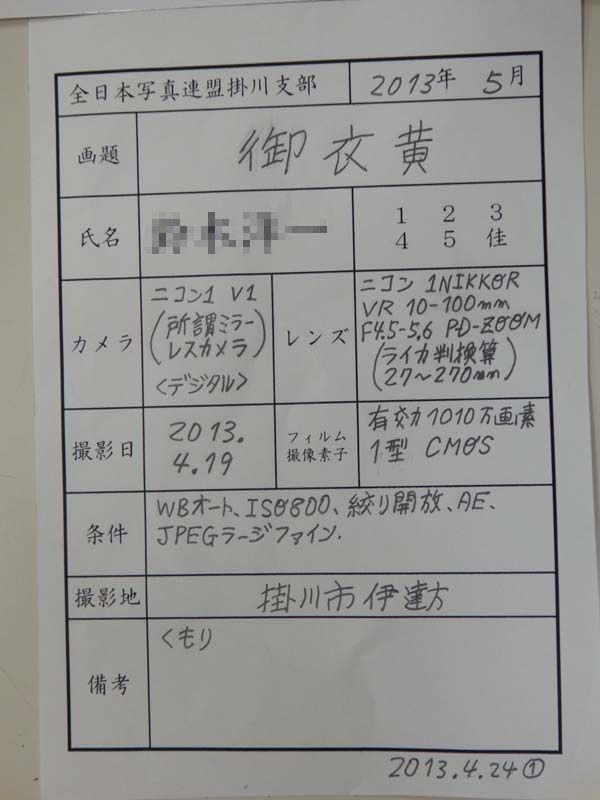 全日本写真連盟掛川支部 2013年 5月
画題 御衣黄
氏名
1 2 3
4 5 佳
カメラ
ニコン1 V1
(所謂ミラー
レスカメラ)
<デジタル>
レンズ
ニコン 1NIKKOR
VR 10-100mm
F4.5-5.6 PD-ZOOM
(ライカ判換算
27～270mm)
撮影日
2013.
4.19
フィルム
撮像素子
有効力1010万画素
1型 CMOS
条件
WBオート、ISO800、絞り開放、AE、
JPEGラージファイン.
撮影地 掛川市伊達方
備考
くもり
2013.4.24①